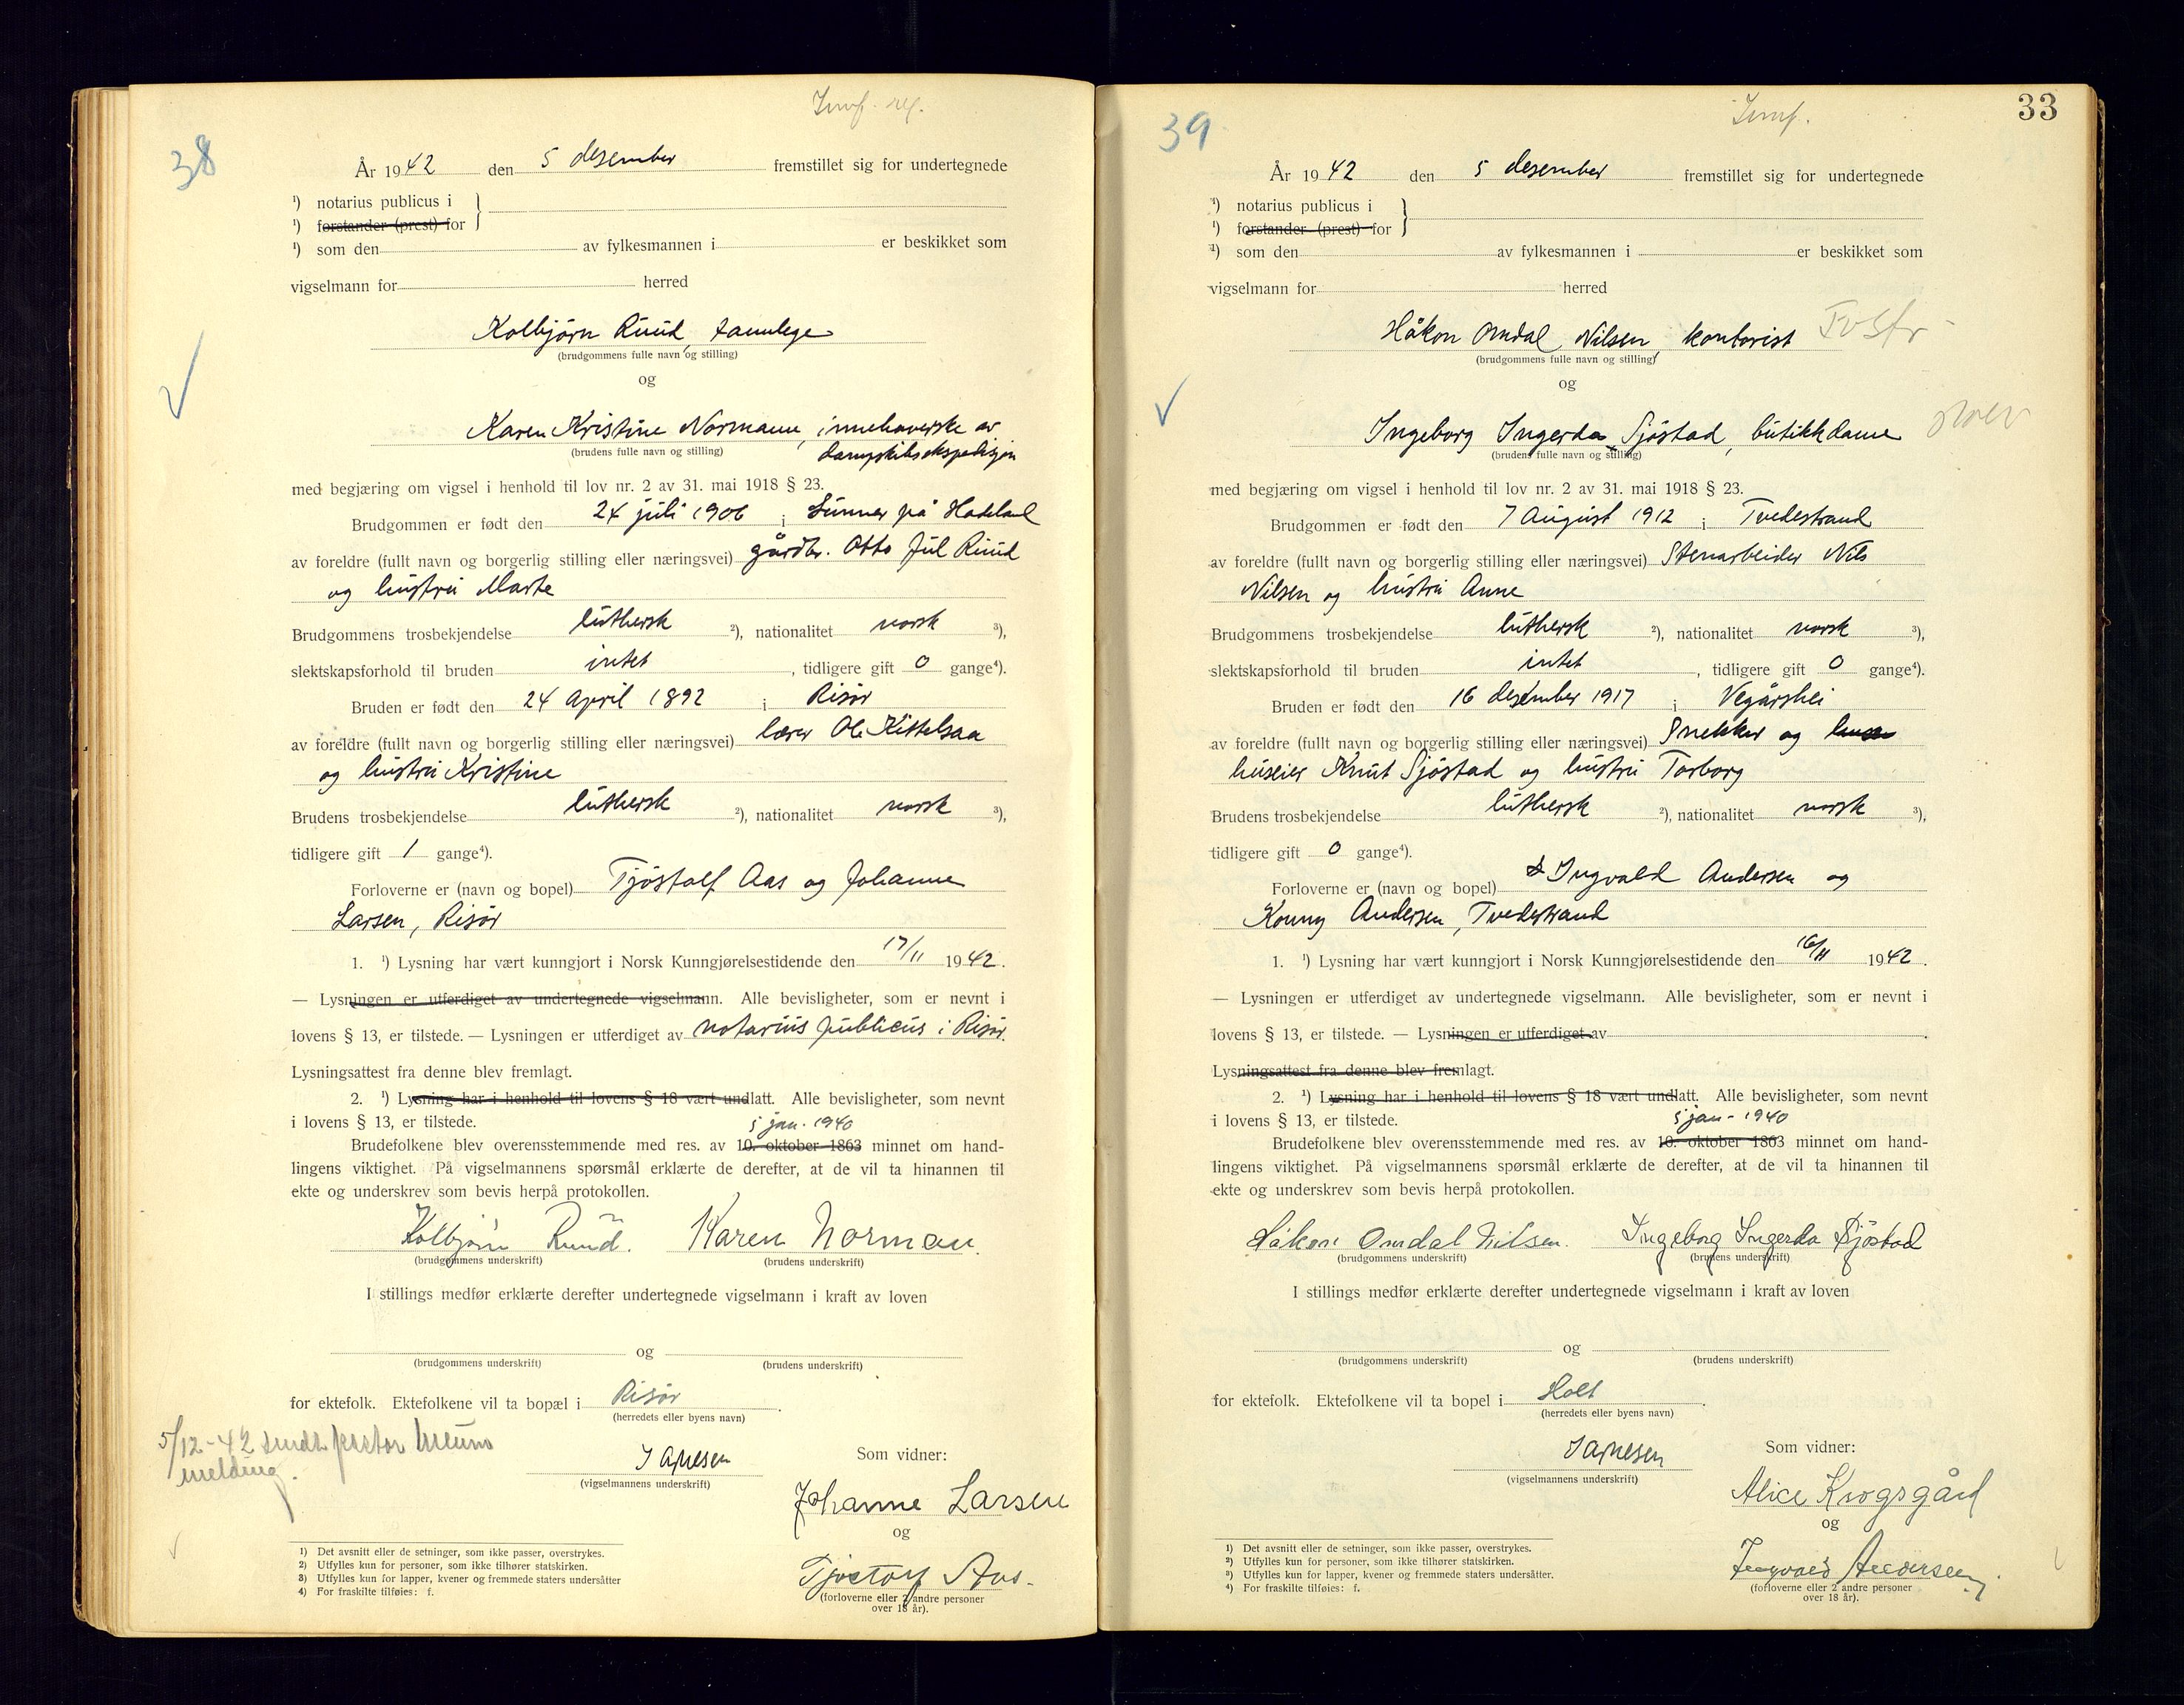 38
År 1942 den 5 desember fremstillet sig for undertegnede
¹) notarius publicus i
¹) forstander (prest) for
¹) som den av fylkesmannen i er beskikket som
vigselmann for herred
Kolbjörn Ruud, tannlege
(brudgommens fulle navn og stilling)
og
Karen Kristine Normann, innehaverske av
dampskibsekspedisjon
(brudens fulle navn og stilling)
med begjæring om vigsel i henhold til lov nr. 2 av 31. mai 1918 § 23.
Brudgommen er født den 24 juli 1906 i Lunner på Hadeland
av foreldre (fullt navn og borgerlig stilling eller næringsvei) gårdbr. Otto Jul Ruud
og hustru Marte
Brudgommens trosbekjendelse luthersk ²), nationalitet norsk ³),
slektskapsforhold til bruden intet, tidligere gift 0 gange⁴).
Bruden er født den 24 april 1892 i Risör
av foreldre (fullt navn og borgerlig stilling eller næringsvei) lærer Ole Kittelsaa
og hustru Kristine
Brudens trosbekjendelse luthersk ²), nationalitet norsk ³),
tidligere gift 1 gange⁴).
Forloverne er (navn og bopel) Tjöstolf Aas og Johanne
Larsen, Risör
1. ¹) Lysning har vært kunngjort i Norsk Kunngjørelsestidende den 17/11 1942.
— Lysningen er utferdiget av undertegnede vigselmann. Alle bevisligheter, som er nevnt i
lovens § 13, er tilstede. — Lysningen er utferdiget av notarius publicus i Risör.
Lysningsattest fra denne blev fremlagt.
2. ¹) Lysning har i henhold til lovens § 18 vært undlatt. Alle bevisligheter, som nevnt
i lovens § 13, er tilstede.
5 jan. 1940
Brudefolkene blev overensstemmende med res. av 10. oktober 1863 minnet om hand-
lingens viktighet. På vigselmannens spørsmål erklærte de derefter, at de vil ta hinannen til
ekte og underskrev som bevis herpå protokollen.
Kolbjörn Ruud. Karen Norman.
(brudgommens underskrift) (brudens underskrift)
I stillings medfør erklærte derefter undertegnede vigselmann i kraft av loven
og
(brudgommens underskrift) (brudens underskrift)
for ektefolk. Ektefolkene vil ta bopæl i Risör.
(herredets eller byens navn)
5/12-42 sendt pastor
melding.
(vigselmannens underskrift)
Som vidner:
Johanne Larsen
og
Tjostolf Aas.
(forloverne eller 2 andre personer
over 18 år).
1) Det avsnitt eller de setninger, som ikke passer, overstrykes.
2) Utfylles kun for personer, som ikke tilhører statskirken.
3) Utfylles kun for lapper, kvener og fremmede staters undersåtter
4) For fraskilte tilføies: f.
39
33
År 1942 den 5 desember fremstillet sig for undertegnede
¹) notarius publicus i
¹) forstander (prest) for
¹) som den av fylkesmannen i er beskikket som
vigselmann for herred
Håkon Omdal Nilsen, kontorist
(brudgommens fulle navn og stilling)
og
Ingeborg Ingerda Sjöstad, butikkdame
(brudens fulle navn og stilling)
med begjæring om vigsel i henhold til lov nr. 2 av 31. mai 1918 § 23.
Brudgommen er født den 7 August 1912 i Tvedestrand
av foreldre (fullt navn og borgerlig stilling eller næringsvei) Stenarbeider Nils
Nilsen og hustru Anne
Brudgommens trosbekjendelse luthersk ²), nationalitet norsk ³),
slektskapsforhold til bruden intet, tidligere gift 0 gange⁴).
Bruden er født den 16 desember 1917 i Vegårshei
av foreldre (fullt navn og borgerlig stilling eller næringsvei) Snekker og
huseier Knut Sjöstad og hustru Torborg
Brudens trosbekjendelse luthersk ²), nationalitet norsk ³),
tidligere gift 0 gange⁴).
Forloverne er (navn og bopel) Ingvald Andersen og
Konny Andersen, Tvedestrand
1. ¹) Lysning har vært kunngjort i Norsk Kunngjørelsestidende den 16/11 1942.
— Lysningen er utferdiget av undertegnede vigselmann. Alle bevisligheter, som er nevnt i
lovens § 13, er tilstede. — Lysningen er utferdiget av
Lysningsattest fra denne blev fremlagt.
2. ¹) Lysning har i henhold til lovens § 18 vært undlatt. Alle bevisligheter, som nevnt
i lovens § 13, er tilstede.
5 jan- 1940
Brudefolkene blev overensstemmende med res. av 10. oktober 1863 minnet om hand-
lingens viktighet. På vigselmannens spørsmål erklærte de derefter, at de vil ta hinannen til
ekte og underskrev som bevis herpå protokollen.
Håkon Omdal Nilsen. Ingeborg Ingerda Sjöstad
(brudgommens underskrift) (brudens underskrift)
I stillings medfør erklærte derefter undertegnede vigselmann i kraft av loven
og
(brudgommens underskrift) (brudens underskrift)
for ektefolk. Ektefolkene vil ta bopel i Holt.
(herredets eller byens navn)
(vigselmannens underskrift)
Som vidner:
Alice Krogsgård
og
Ingvald Andersen
(forloverne eller 2 andre personer
over 18 år).
1) Det avsnitt eller de setninger, som ikke passer, overstrykes.
2) Utfylles kun for personer, som ikke tilhører statskirken.
3) Utfylles kun for lapper, kvener og fremmede staters undersåtter.
4) For fraskilte tilføies: f.